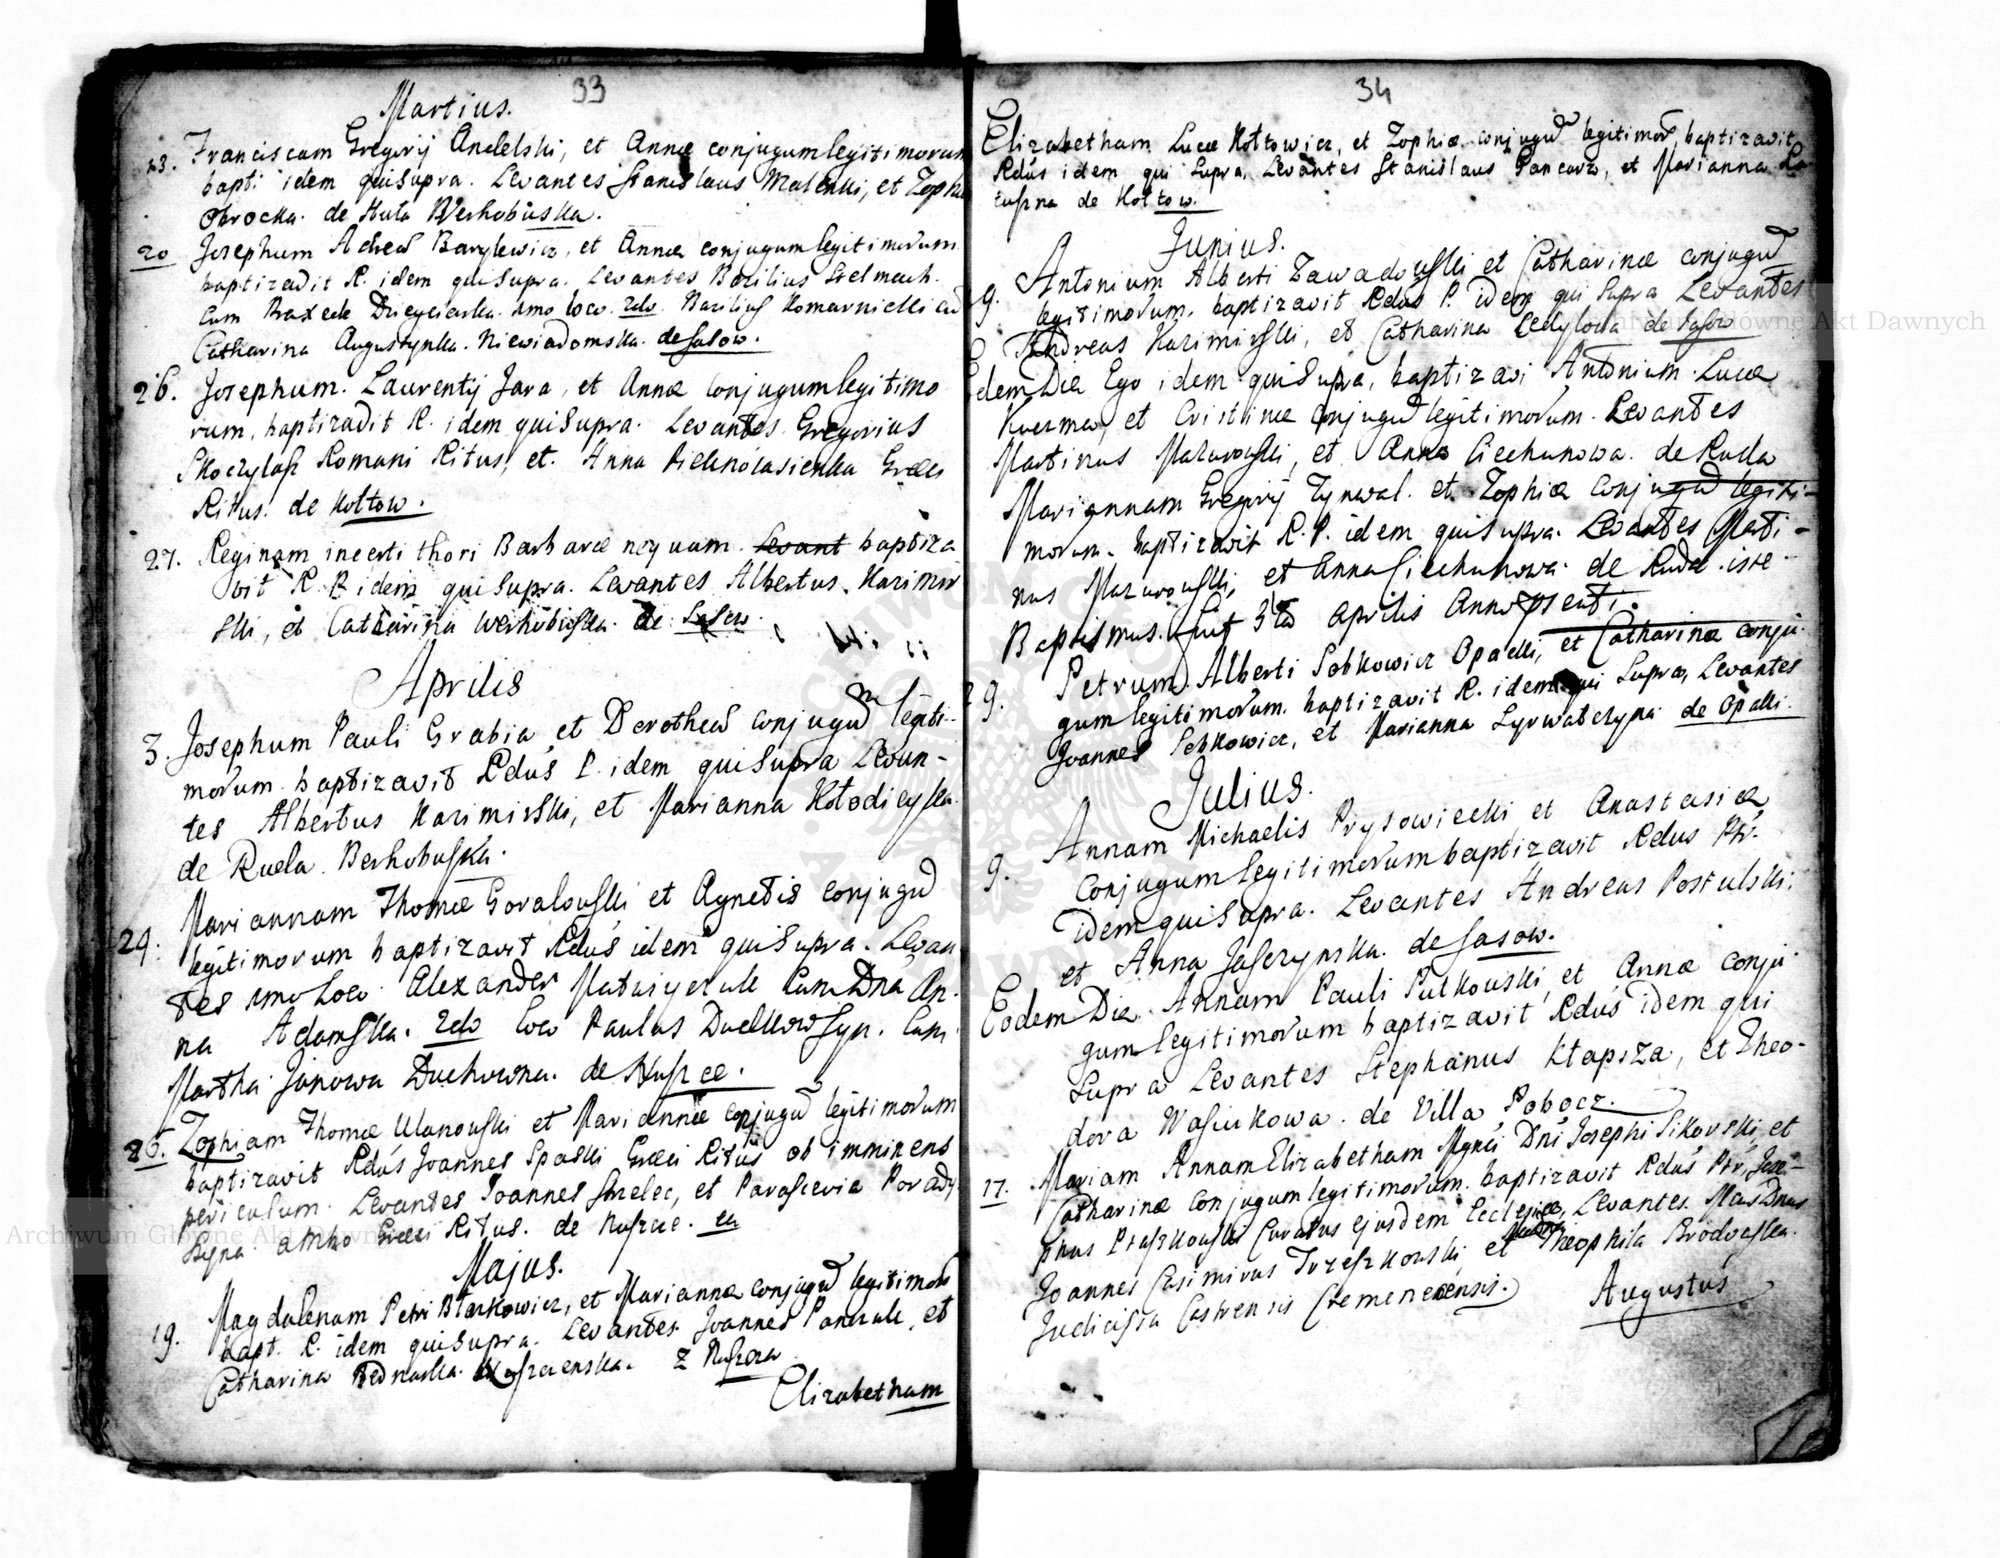 33
Martius.
13. Franciscam Gregorij Andelski, et Annæ conjugum legitimorum
bapti idem qui supra. Levantes Stanislaus Malenki, et Zophia
Obrocka. de Huta Werhobuska.
20 Josephum Adreæ Barylewicz, et Annæ conjugum legitimorum
baptizavit R. idem qui supra. Levantes Basilius Stelmach.
Cum loco. 2do. Basilius Komarnicki cu
Catharina Augustynka. Niewiadomska. de Sasow.
26. Josephum. Laurentij Jara, et Annæ conjugum legitimo
rum, baptizavit R. idem qui supra. Levantes. Gregorius
Skoczylasz Romani Ritus, et. Anna Græci
Ritus. de Kołtow.
27. Reginam incerti thori Barbaræ nequam. Levant baptiza
vit R. P. idem qui supra. Levantes Albertus. Kazimir
ski, et Catharina Werhobuska. de Sasow.
Aprilis
3. Josephum Pauli Grabia et Dorotheæ conjugum legiti-
morum baptizavit Rdus P. idem qui supra Levan-
tes Albertus Kazimirski, et Marianna
de Ruda. Berhobuska.
29. Mariannam Thomæ Goralouski et Agnetis conjugum
legitimorum baptizavit Rdus idem qui supra. Levan
tes 1mo Loco Alexander cum Dna An-
na Adamska. 2do loco Paulus cum
Martha Janowa Duchowna. de Huszcze.
26. Zophiam Thomæ Ulanouski et Mariannæ conjugum legitimorum
baptizavit Rdus Joannes Spaski Græci Ritus ob imminens
periculum. Levantes Joannes Strzelec, et Parascevia
ambo Græci Ritus. de
Majus.
19. Magdalenam Petri et Mariannæ conjugum legitimor
bapt. R. idem qui supra. Levantes Joannes et
Catharina Bednarka. z
Elizabetham
34
Elizabetham Lucæ Kołtowicz, et Zophiæ conjugum legitimor, baptizavit
Rdus idem qui supra, Levantes Stanislaus Pancarz, et Marianna
de Kołtow.
Junius.
9. Antonium Alberti Zawadouski et Catharinæ conjugum
legitimorum. baptizavit Rdus P. idem qui supra Levantes
Andreas Kazimirski, et Catharina de Sasow
Edem Die Ego idem qui supra, baptizavi Antonium Lucæ
Kuzma, et Cristinæ conjugum legitimorum. Levantes
Martinus Mazurouski, et Anna Ciechanowa. de Ruda
Mariannam Gregorij Tynwal. et Zophiæ conjugum legiti-
morum. baptizavit R. P. idem qui supra. Levantes Marti-
nus Mazurouski, et Anna Ciechanowa de Ruda. iste
Baptismus. fuit 3tia Aprilis Anno psenti.
29. Petrum Alberti Sobkowicz Opacki, et Catharinæ conju-
gum legitimorum. baptizavit R. idem qui supra, Levantes
Joannes Sobkowicz, et Marianna de Opaki.
Julius.
9. Annam Michaelis Prysowiecki et Anastasiæ
conjugum legitimorum baptizavit Rdus Ptr.
idem qui supra. Levantes Andreas Postulski,
et Anna Jasczynska. de Sasow.
Eodem Die Annam Pauli Putkouski, et Annæ conju-
gum legitimorum baptizavit Rdus idem qui
supra Levantes Stephanus Kłapsza, et Theo-
dora Wasiukowa. de Villa Pobocz.
17. Mariam Annam Elizabetham Mgnci Dni Josephi Sikorski, et
Catharinæ conjugum legitimorum. baptizavit Rdus Ptr, Jose-
phus Ptaszkouski Curatus ejusdem Ecclesiæ, Levantes. Mag Dnus
Joannes Casimirus Trzeszkouski, et Theophila Brodovska.
Judicissa Castrensis Cremenecensis.
Augustus
Archiwum Główne Akt Dawnych
Archiwum Główne Akt Dawnych